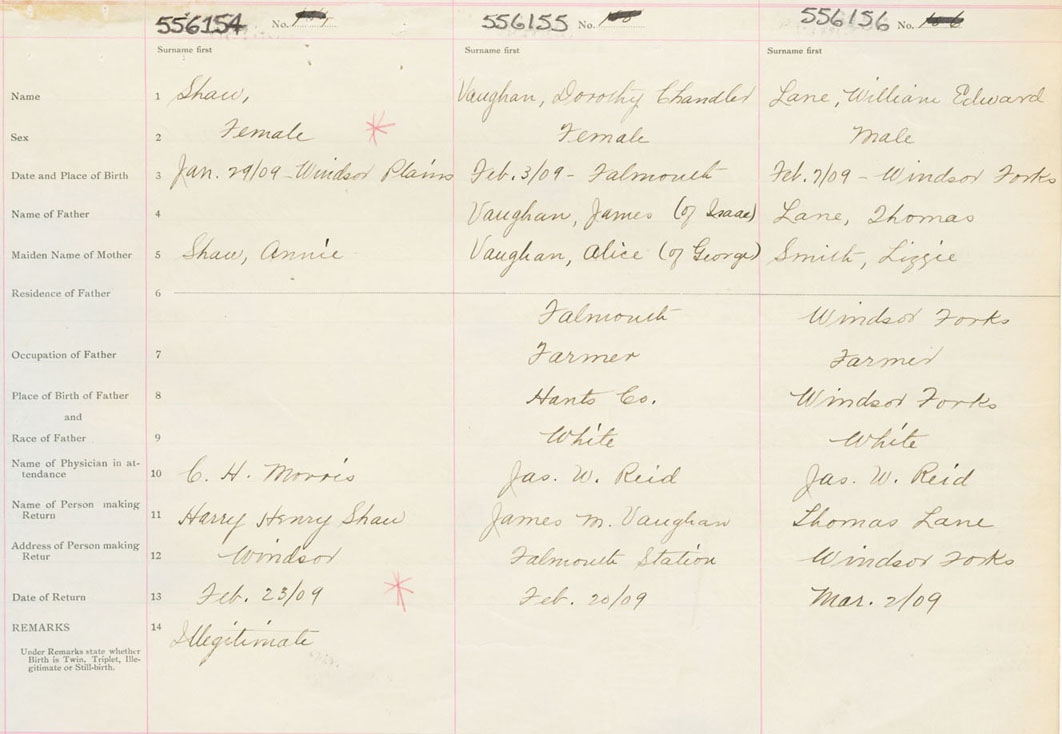 556154 No. 556155 No. 556156 No.
Surname first Surname first Surname first
Name 1 Shaw, Vaughan, Dorothy Chandler Lane, William Edward
Sex 2 Female Female Male
Date and Place of Birth 3 Jan. 29/09 - Windsor Plains Feb. 3/09 - Falmouth Feb. 7/09 - Windsor Forks
Name of Father 4 Vaughan, James (of Isaac) Lane, Thomas
Maiden Name of Mother 5 Shaw, Annie Vaughan, Alice (of George) Smith, Lizzie
Residence of Father 6
Falmouth Windsor Forks
Occupation of Father 7 Farmer Farmer
Place of Birth of Father 8 Hants Co. Windsor Forks
and
Race of Father 9 White White
Name of Physician in at-
tendance 10 C. H. Morris Jas. W. Reid Jas. W. Reid
Name of Person making
Return 11 Harry Henry Shaw James M. Vaughan Thomas Lane
Address of Person making
Retur 12 Windsor Falmouth Station Windsor Forks
Date of Return 13 Feb. 23/09 Feb. 20/09 Mar. 2/09
REMARKS 14 Illegitimate
Under Remarks state whether
Birth is Twin, Triplet, Ille-
gitimate or Still-birth.